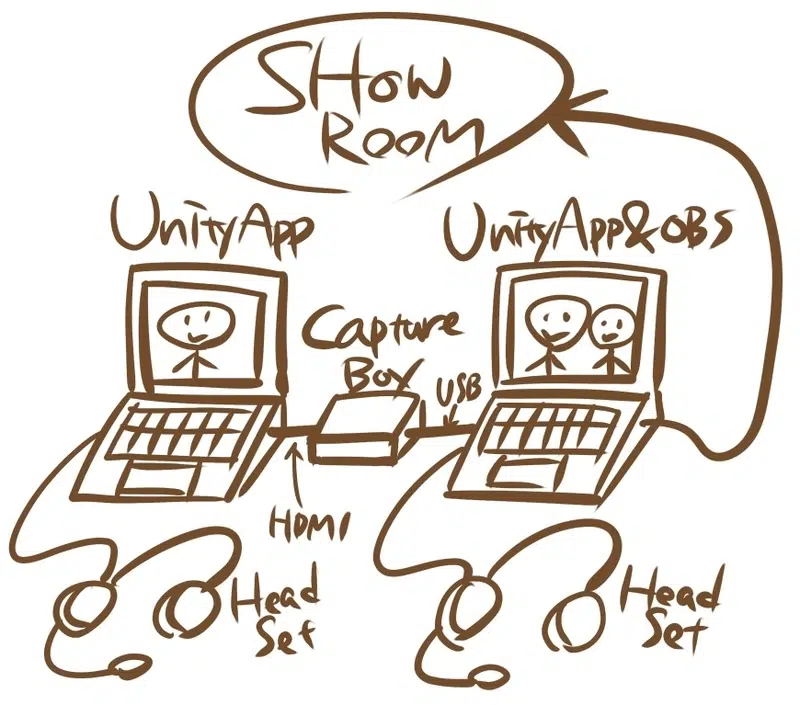 SHOW
ROOM
UnityApp
UnityApp&OBS
Capture
Box
USB
HDMI
Head
Set
Head
Set